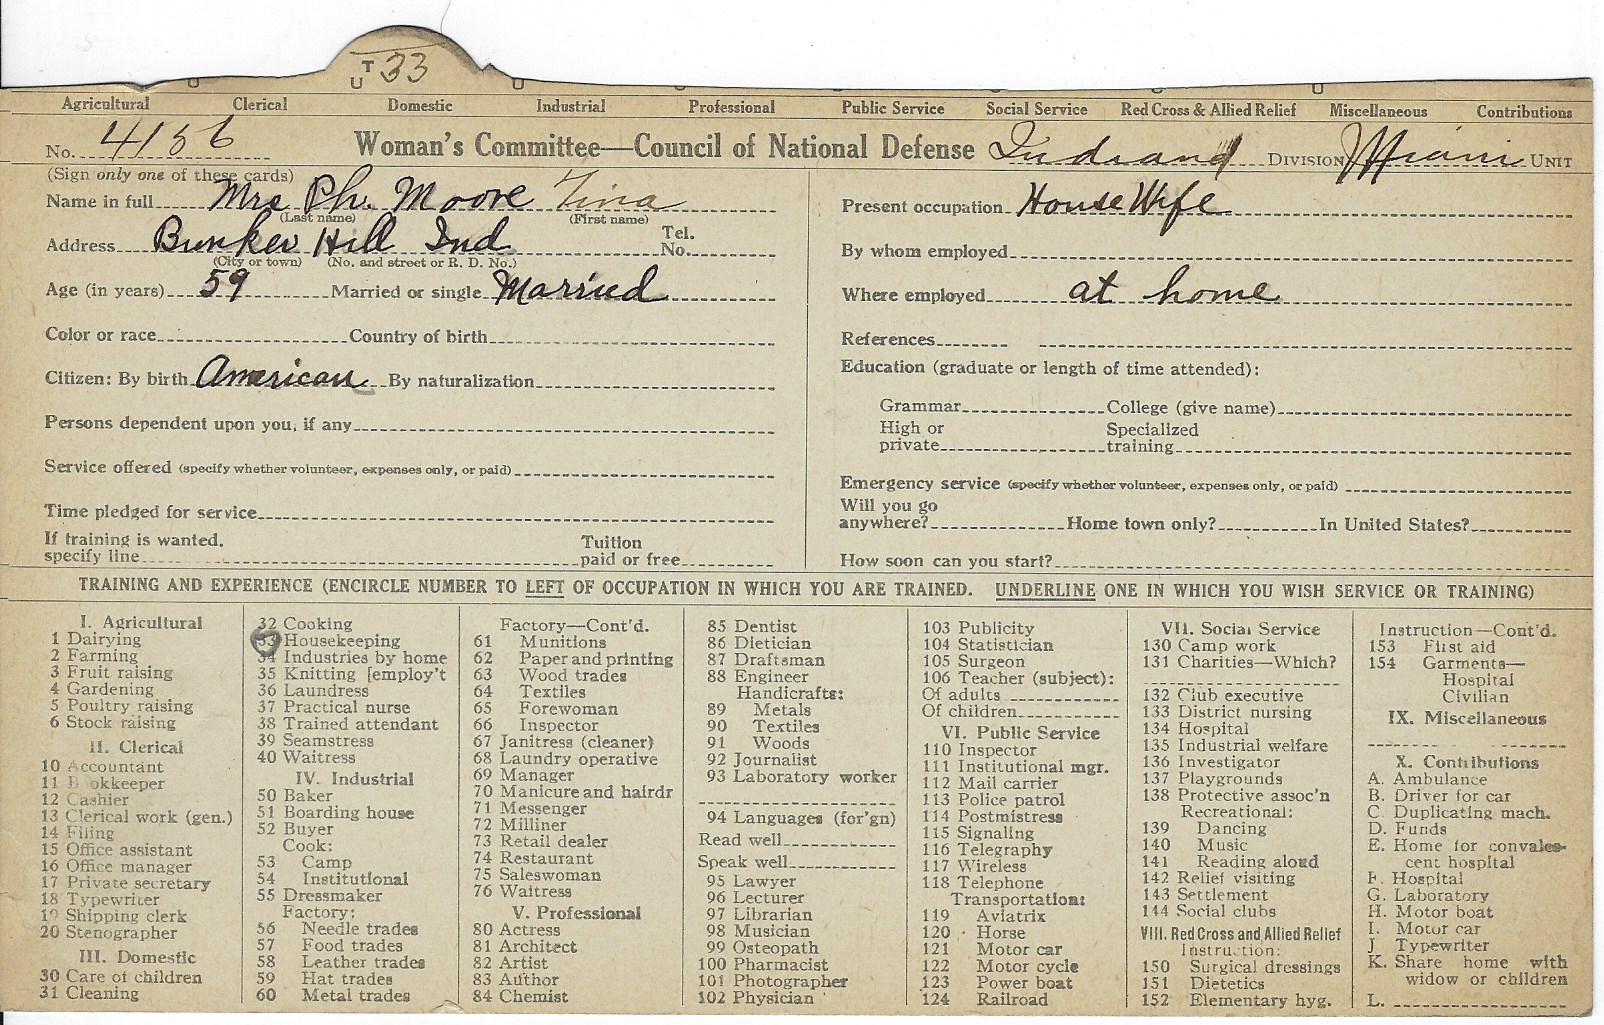 T
U 33
Agricultural Clerical Domestic Industrial Professional Public Service Social Service Red Cross & Allied Relief Miscellaneous Contributions
No. 4156 Woman's Committee—Council of National Defense Indiana DIVISION Miami UNIT
(Sign only one of these cards)
Name in full Mrs Ph. Moore Tina
(Last name) (First name)
Address Bunker Hill Ind Tel. No.
(City or town) (No. and street or R. D. No.)
Age (in years) 59 Married or single Married
Color or race Country of birth
Citizen: By birth American By naturalization
Persons dependent upon you, if any
Service offered (specify whether volunteer, expenses only, or paid)
Time pledged for service
If training is wanted.
specify line Tuition paid or free
Present occupation House Wife
By whom employed
Where employed at home
References
Education (graduate or length of time attended):
Grammar College (give name)
High or private Specialized training
Emergency service (specify whether volunteer, expenses only, or paid)
Will you go anywhere? Home town only? In United States?
How soon can you start?
TRAINING AND EXPERIENCE (ENCIRCLE NUMBER TO LEFT OF OCCUPATION IN WHICH YOU ARE TRAINED. UNDERLINE ONE IN WHICH YOU WISH SERVICE OR TRAINING)
I. Agricultural
1 Dairying
2 Farming
3 Fruit raising
4 Gardening
5 Poultry raising
6 Stock raising
II. Clerical
10 Accountant
11 Bookkeeper
12 Cashier
13 Clerical work (gen.)
14 Filing
15 Office assistant
16 Office manager
17 Private secretary
18 Typewriter
19 Shipping clerk
20 Stenographer
III. Domestic
30 Care of children
31 Cleaning
32 Cooking
33 Housekeeping
34 Industries by home
35 Knitting [employ't
36 Laundress
37 Practical nurse
38 Trained attendant
39 Seamstress
40 Waitress
IV. Industrial
50 Baker
51 Boarding house
52 Buyer
Cook:
53 Camp
54 Institutional
55 Dressmaker
Factory:
56 Needle trades
57 Food trades
58 Leather trades
59 Hat trades
60 Metal trades
Factory—Cont'd.
61 Munitions
62 Paper and printing
63 Wood trades
64 Textiles
65 Forewoman
66 Inspector
67 Janitress (cleaner)
68 Laundry operative
69 Manager
70 Manicure and hairdr
71 Messenger
72 Milliner
73 Retail dealer
74 Restaurant
75 Saleswoman
76 Waitress
V. Professional
80 Actress
81 Architect
82 Artist
83 Author
84 Chemist
85 Dentist
86 Dietician
87 Draftsman
88 Engineer
Handicrafts:
89 Metals
90 Textiles
91 Woods
92 Journalist
93 Laboratory worker
94 Languages (for'gn)
Read well
Speak well
95 Lawyer
96 Lecturer
97 Librarian
98 Musician
99 Osteopath
100 Pharmacist
101 Photographer
102 Physician
103 Publicity
104 Statistician
105 Surgeon
106 Teacher (subject):
Of adults
Of children
VI. Public Service
110 Inspector
111 Institutional mgr.
112 Mail carrier
113 Police patrol
114 Postmistress
115 Signaling
116 Telegraphy
117 Wireless
118 Telephone
Transportation:
119 Aviatrix
120 Horse
121 Motor car
122 Motor cycle
123 Power boat
124 Railroad
VII. Social Service
130 Camp work
131 Charities—Which?
132 Club executive
133 District nursing
134 Hospital
135 Industrial welfare
136 Investigator
137 Playgrounds
138 Protective assoc'n
Recreational:
139 Dancing
140 Music
141 Reading aloud
142 Relief visiting
143 Settlement
144 Social clubs
VIII. Red Cross and Allied Relief
Instruction:
150 Surgical dressings
151 Dietetics
152 Elementary hyg.
Instruction—Cont'd.
153 First aid
154 Garments—
Hospital
Civilian
IX. Miscellaneous
X. Contributions
A. Ambulance
B. Driver for car
C. Duplicating mach.
D. Funds
E. Home for convales-
cent hospital
F. Hospital
G. Laboratory
H. Motor boat
I. Motor car
J Typewriter
K. Share home with
widow or children
L.